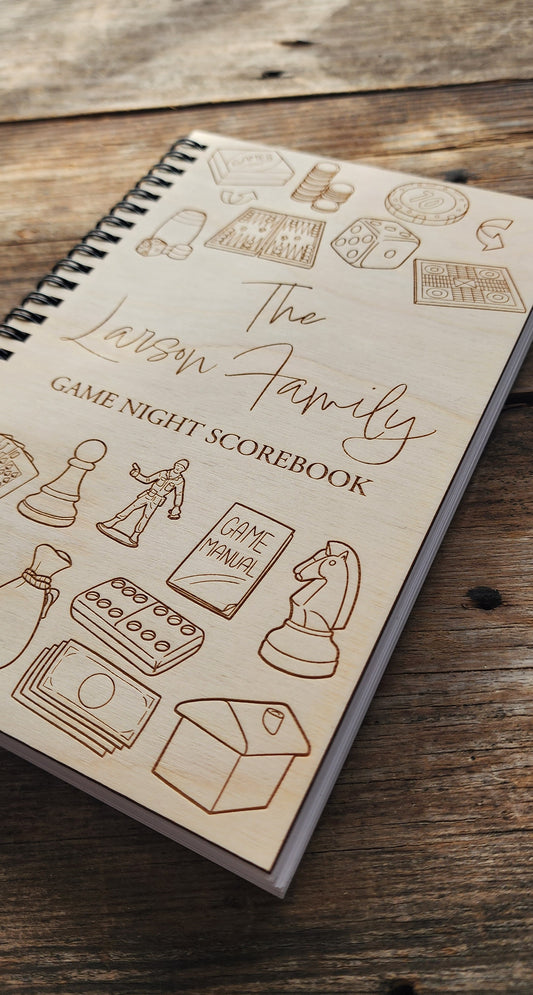 10
The
Larson Family
GAME NIGHT SCOREBOOK
GAME
MANUAL